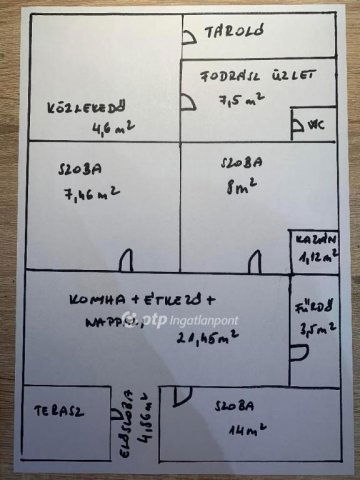 TÁROLÓ
FODRÁSZ ÜZLET
7,5 m²
KÖZLEKEDŐ
4,6 m²
WC
SZOBA
7,46 m²
SZOBA
8 m²
KAZÁN
1,12 m²
KONHA + ÉTKEZŐ +
NAPPALI
21,45 m²
otp Ingatlanpont
FÜRDŐ
3,5 m²
TERASZ
ELŐSZOBA
4,86 m²
SZOBA
14 m²